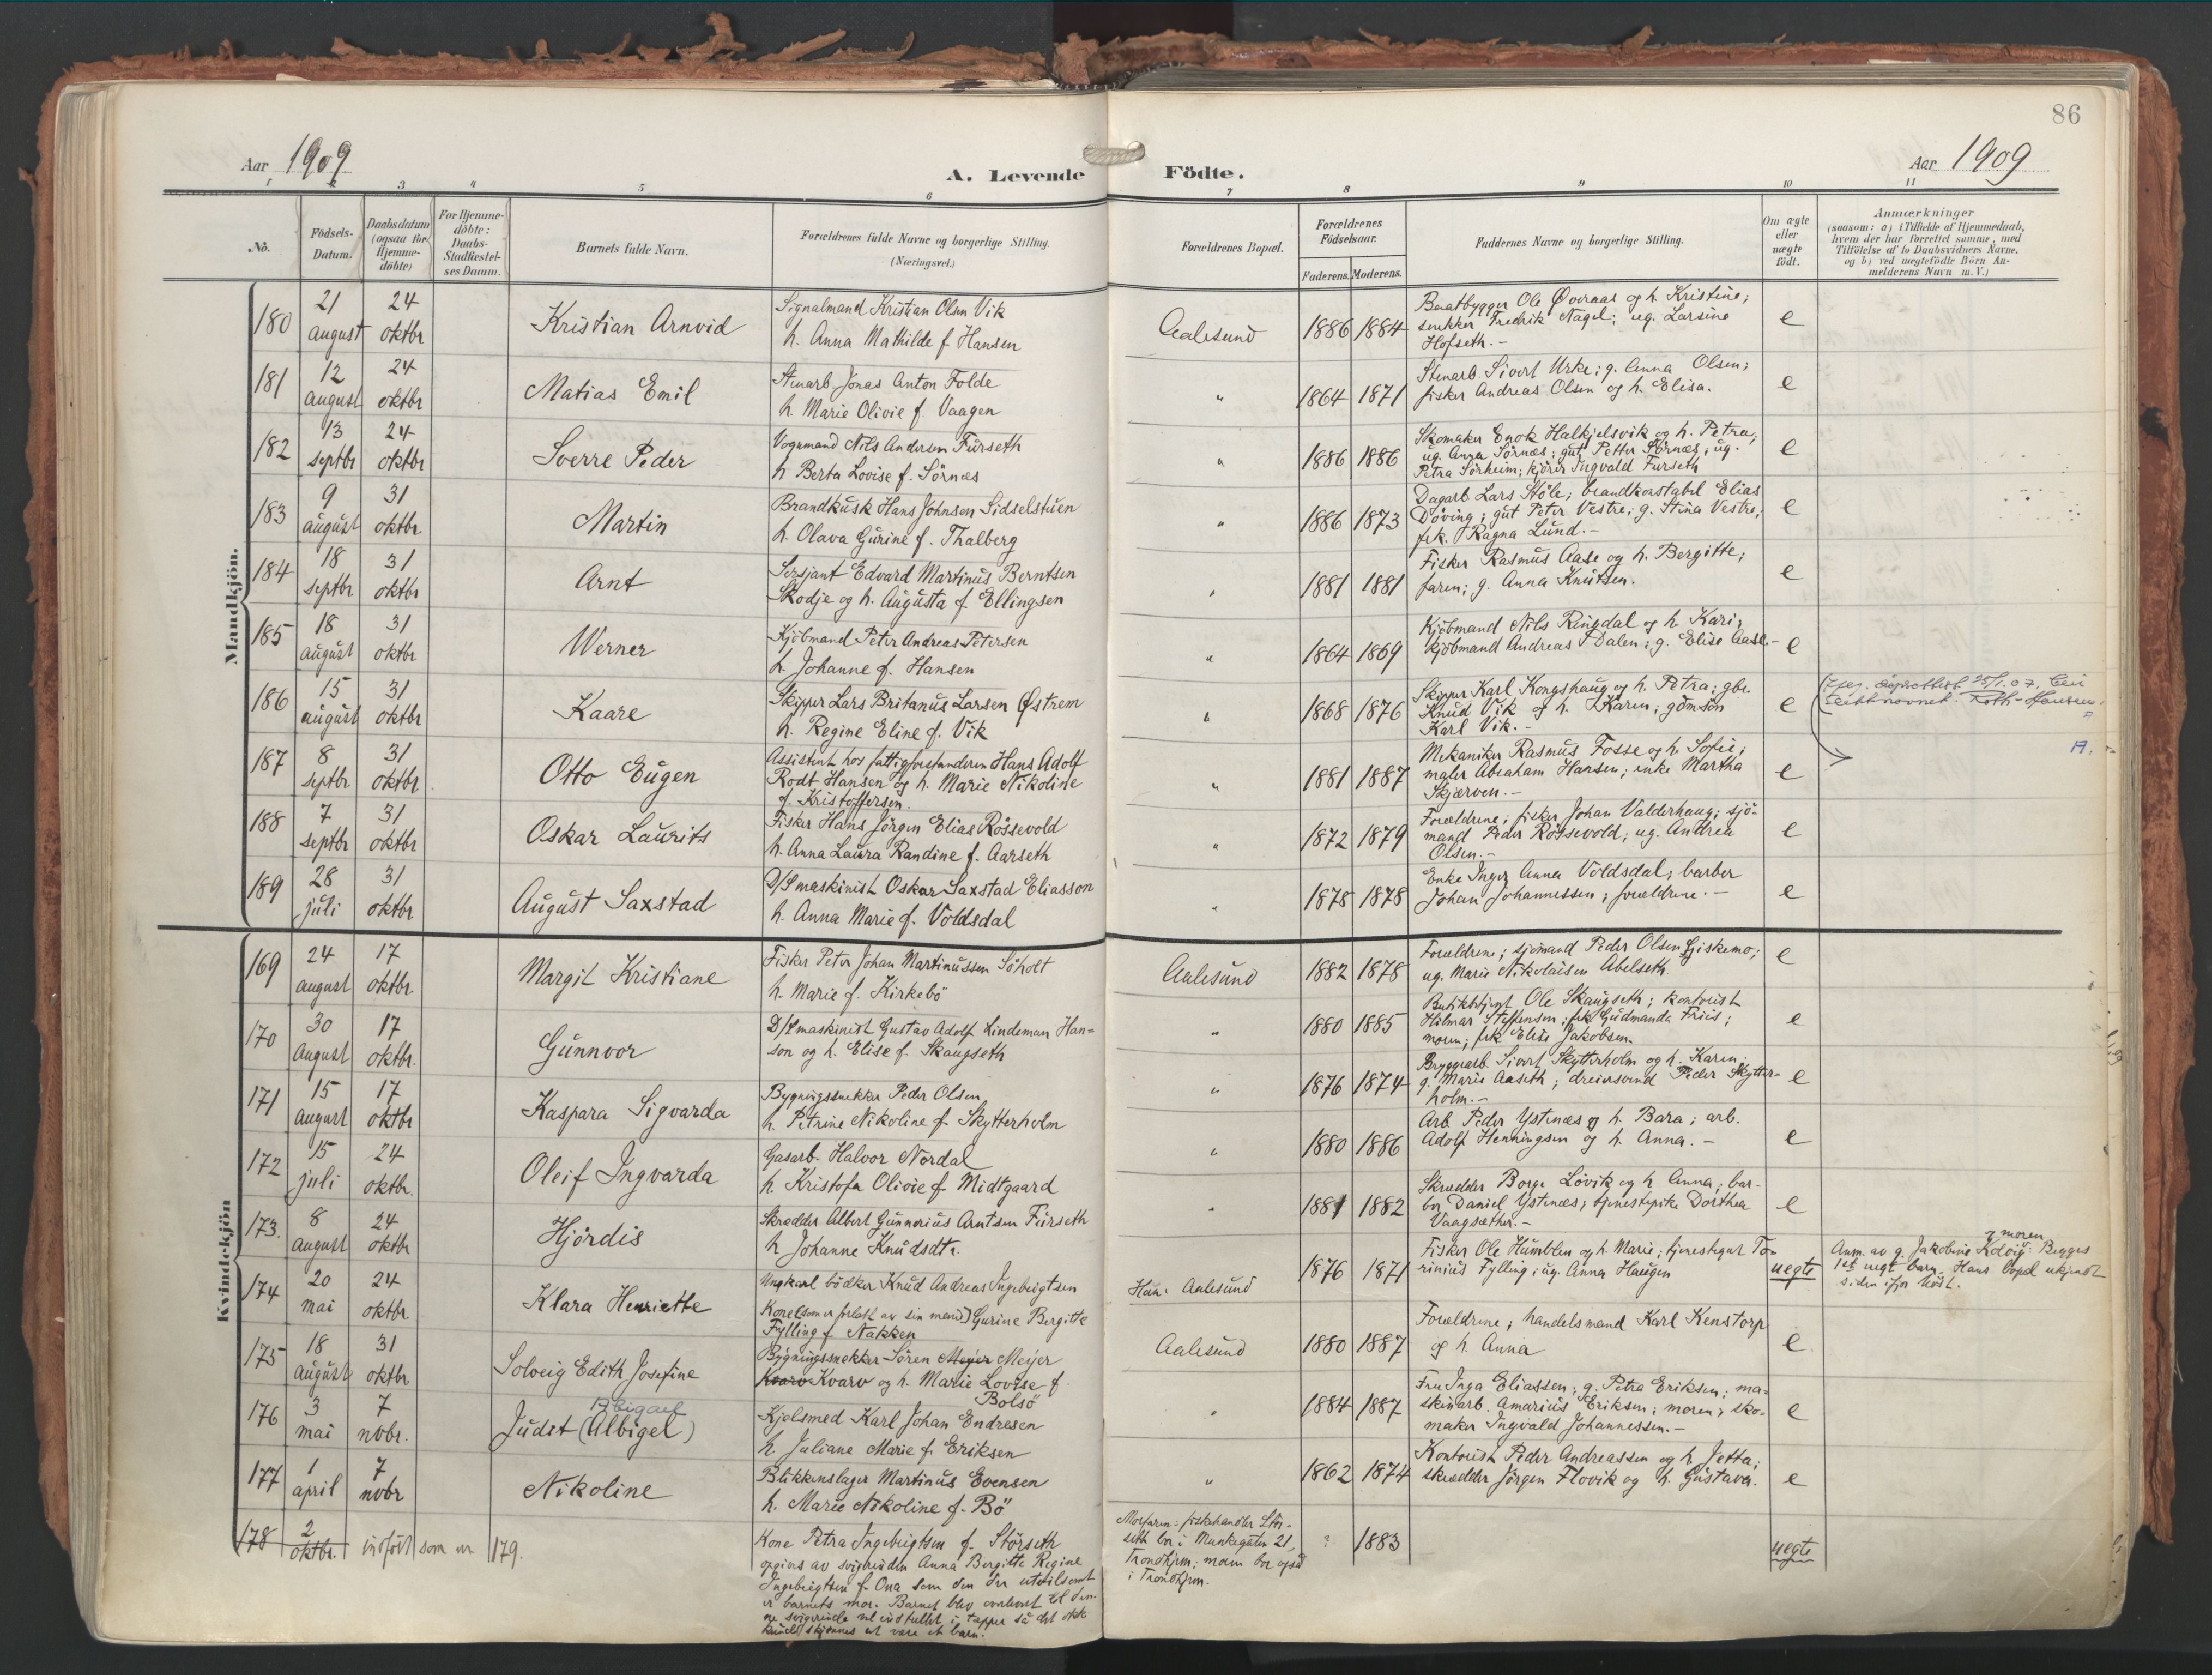 86
Aar 1909
A. Levende Födte.
Aar 1909
1 2 3 4 5 6 7 8 9 10 11
No.
Födsels-Datum.
Daabsdatum (ogsaa for Hjemme-döbte)
For Hjemme-döbte: Daabs-Stadfæstel-ses Datum.
Barnets fulde Navn.
Forældrenes fulde Navne og borgerlige Stilling. (Næringsvei.)
Forældrenes Bopæl.
Forældrenes Födselsaar.
Faderens. Moderens.
Faddernes Navne og borgerlige Stilling.
Om ægte eller uægte födt.
Anmærkninger
(saasom: a) i Tilfælde af Hjemmedaab,
hvem der har forrettet samme, med
Tilföielse af to Daabsvidners Navne.
og b) ved uægtefödte Börn An-
melderens Navn m.V.)
Mandkjön.
180 21 august 24 oktbr Kristian Arnvid
Signalmand Kristian Olsen Vik
h. Anna Mathilde f Hansen
Aalesund 1886 1884
Baatbygger Ole Øveraas og h. Kristine;
snekker Fredrik Nagel; ug. Larsine
Hofseth. –
e
181 12 august 24 oktbr Matias Emil
Stenarb Jonas Anton Folde
h. Marie Olivie f. Vaagen
" 1864 1871
Stenarb. Sivert Urke; g. Anna Olsen;
fisker Andreas Olsen og h. Elisa.
e
182 13 septbr 24 oktbr Sverre Peder
Vognmand Nils Andersen Furseth
h Berta Lovise f. Sörnæs
" 1886 1886
Skomaker Enok Halkjelsvik og h. Petra;
ug. Anna Sörnæs; gut Petter Sörnæs; ug.
Petra Sörheim; kjörer Ingvald Furseth
e
183 9 august 31 oktbr Martin
Brandkusk Hans Johnsen Sidselstuen
h. Olava Gurine f. Thalberg
" 1886 1873
Dagarb Lars Stöle; brandkonstabel Elias
Döving; gut Peter Vestre; g. Stina Vestre;
frk. Ragna Lund. –
e
184 18 septbr 31 oktbr Arnt
Sersjant Edvard Martinus Berntsen
Skodje og h. Augusta f. Ellingsen
" 1881 1881
Fisker Rasmus Aase og h. Bergitte;
faren; g. Anna Knutsen.
e
185 18 august 31 oktbr Werner
Kjöbmand Peter Andreas Petersen
h Johanne f. Hansen
" 1864 1869
Kjöbmand Nils Ringdal og h. Kari;
kjöbmand Andreas Dalen; g. Elise Aase. –
e
186 15 august 31 oktbr Kaare
Skipper Lars Britanus Larsen Østrem
h. Regine Eline f. Vik
" 1868 1876
Skipper Karl Kongshaug og h. Petra; gbr.
Knud Vik og h. Karen; gdm.sön
Karl Vik. –
e
187 8 septbr 31 oktbr Otto Eugen
Assistent hos fattigforstanderen Hans Adolf
Rodt Hansen og h. Marie Nikoline
f. Kristoffersen.
" 1881 1887
Mekaniker Rasmus Fosse og h. Sofie;
maler Abraham Hansen; enke Martha
Skjærven. –
e
188 7 septbr 31 oktbr Oskar Laurits
Fisker Hans Jörgen Elias Rössevold
h. Anna Laura Randine f. Aarseth
" 1872 1879
Forældrene; fisker Johan Valderhaug; sjö-
mand Peder Rössevold; ug. Andrea
Olsen. –
e
189 28 juli 31 oktbr August Saxstad
D/S maskinist Oskar Saxstad Eliasson
h. Anna Marie f. Voldsdal
" 1878 1878
Enke Inger Anna Voldsdal; barber
Johan Johannessen; forældrene. –
e
Kvindekjön
169 24 august 17 oktbr Margit Kristiane
Fisker Peter Johan Martinussen Söholt
h. Marie f. Kirkebö
Aalesund 1882 1878
Forældrene; sjömand Peder Olsen Giskemo;
ug. Marie Nikolaisen Abelseth.
e
170 30 August 17 oktbr. Gunnvor
D/S maskinist Gustav Adolf Lindeman Han=
son og h. Elise f. Skaugseth
" 1880 1885
Butikbetjent Ole Skaugseth; kontorist
Hilmar Steffensen; frk Gudmanda Friis;
moren; frk Elise Jakobsen.
e
171 15 August 17 oktbr Kaspara Sigvarda
Bygningssnekker Peder Olsen
h. Petrine Nikoline f. Skytterholm
" 1876 1874
Bryggearb. Sivert Skytterholm og h. Karen;
g. Marie Aaseth; dreiersvend Peder Skytter-
holm. –
e
172 15 juli 24 oktbr. Oleif Ingvarda
Gasarb. Halvor Nordal
h. Kristofa Olivie f. Midtgaard
" 1880 1886
Arb. Peder Ystenæs og h. Bara; arb.
Adolf Henningsen og h. Anna. –
e
173. 8 august 24 oktbr Hjördis
Skrædder Albert Gunnerius Arntsen Furseth
h Johanne Knudsdtr.
" 1881 1882
Skrædder Borge Lövik og h Anna; bar-
ber Daniel Ystenæs; tjenestepike Dorthea
Vaagsæther. –
e
174 20 mai 24 oktbr Klara Henriette
Ungkarl bödker Knud Andreas Ingebrigtsen
Kone (som er forlatt av sin mand) Gurine Bergitte
Fylling f. Nakken
Han: Aalesund 1876 1871
Fisker Ole Humblen og h. Marie; tjenestegut To-
rinius Fylling; ug. Anna Haugen
uegte
175 18 august 31 oktbr Solveig Edith Josefine
Bygningssnekker Sören Meyer Meijer
Kvarv Kvarv og h. Marie Lovise f.
Bolsö
Aalesund 1880 1887
Forældrene; handelsmand Karl Kenstorp
og h Anna
e
176 3 mai 7 novbr. Judit (Albigel)
Abigael
Kjelsmed Karl Johan Endresen
h Juliane Marie f. Eriksen
" 1884 1887
Fru Inga Eliassen; g. Petra Eriksen; ma-
skinarb. Amarius Eriksen; moren; sko-
maker Ingvald Johannessen. –
e
177 1 april 7 novbr Nikoline
Blikkenslager Martinus Evensen
h. Marie Nikoline f. Bö
" 1862 1874
Kontorist Peder Andreassen og h Jetta;
skrædder Jörgen Flovik og h. Gustava.
e
178 2 oktbr. indfört som nr 179.
Kone Petra Ingebrigtsen f. Störseth
opgives av svigerinden Anna Bergitte Regine
Ingebrigtsen f. Ona som den der utvilsomt
er barnets mor. Barnet blev overlevert til den-
ne svigerinde vel indhyllet i tæpper så det ikke
kunde skjönnes at være et barn.
Morfaren: fiskehandler Stör-
seth bor i Munkegaten 21,
Trondhjem; moren bor også
i Trondhjem.
? 1883
uegte
og moren
Anm. av g. Jakobine Kolvig: Begges
1st uegt barn. Hans bopel ukjendt
siden ifjor höst.